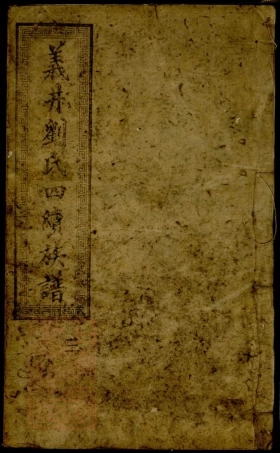 義井劉氏四續族譜
二